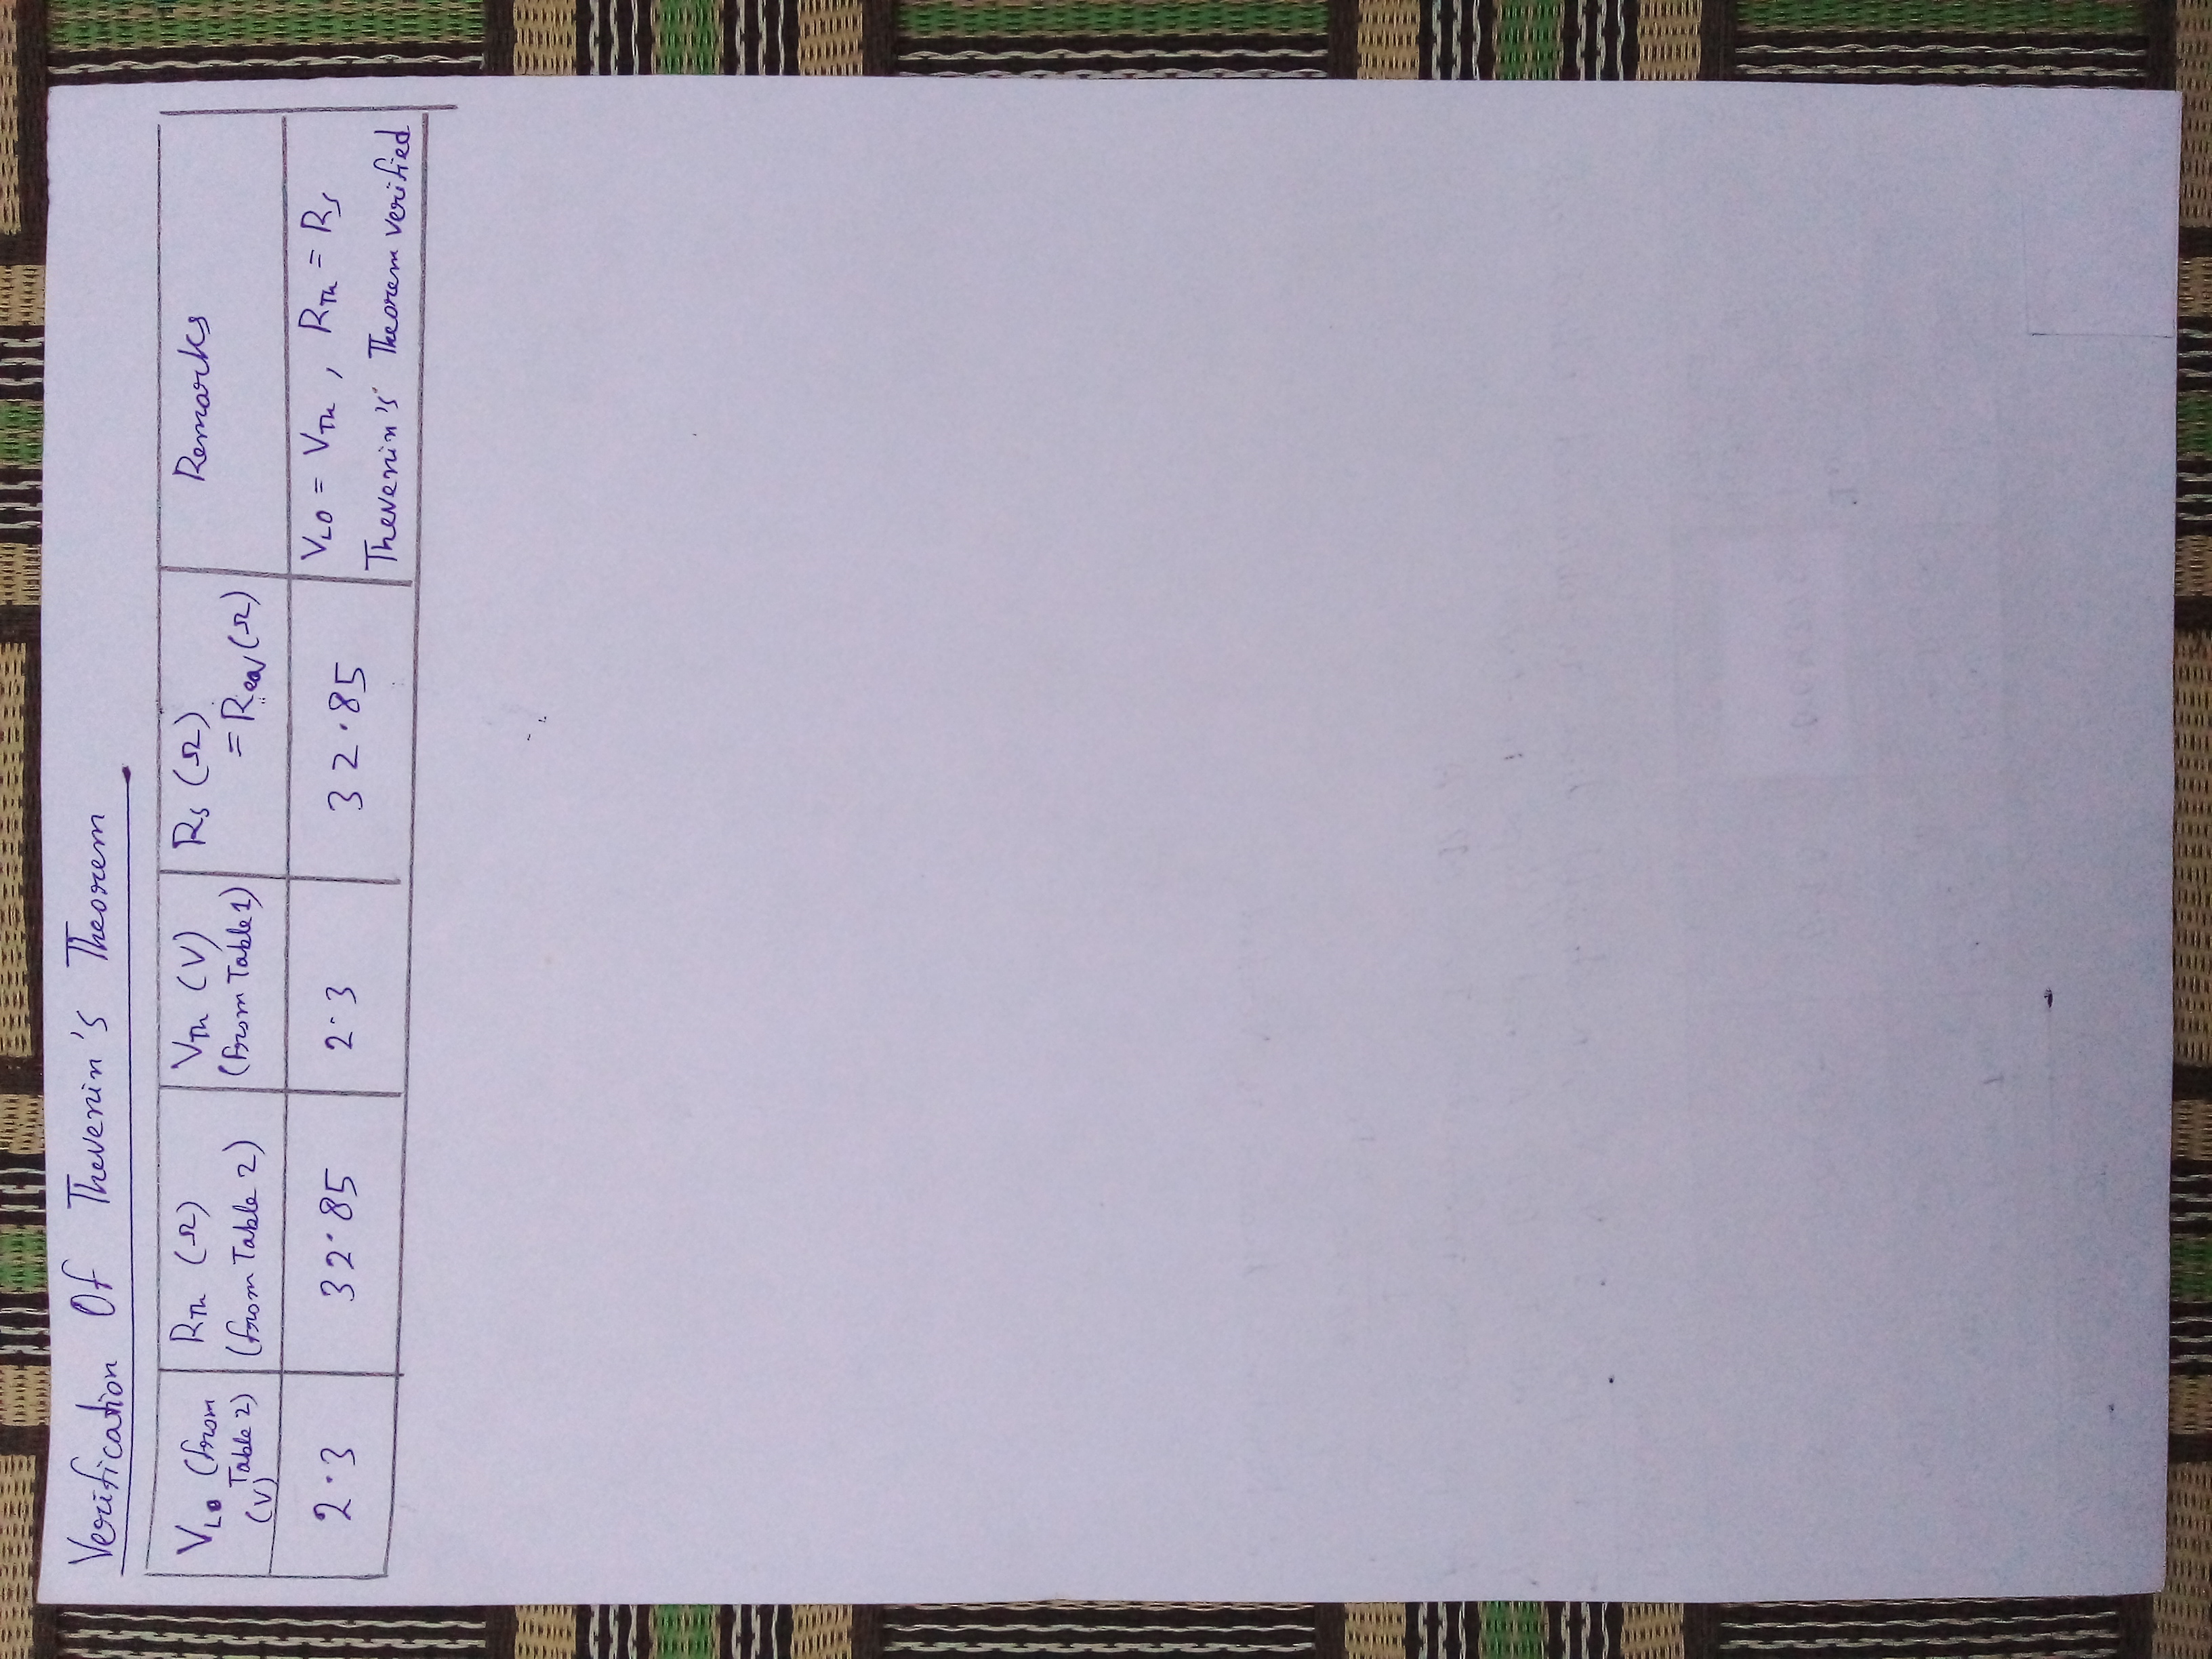 Verification Of Thevenin's Theorem
VL0 (from Table 2) (V)
RTh (Ω) (from Table 2)
VTh (V) (from Table 1)
Rs (Ω) = Reqv (Ω)
Remarks
2.3
32.85
2.3
32.85
VL0 = VTh , RTh = Rs
Thevenin's Theorem verified